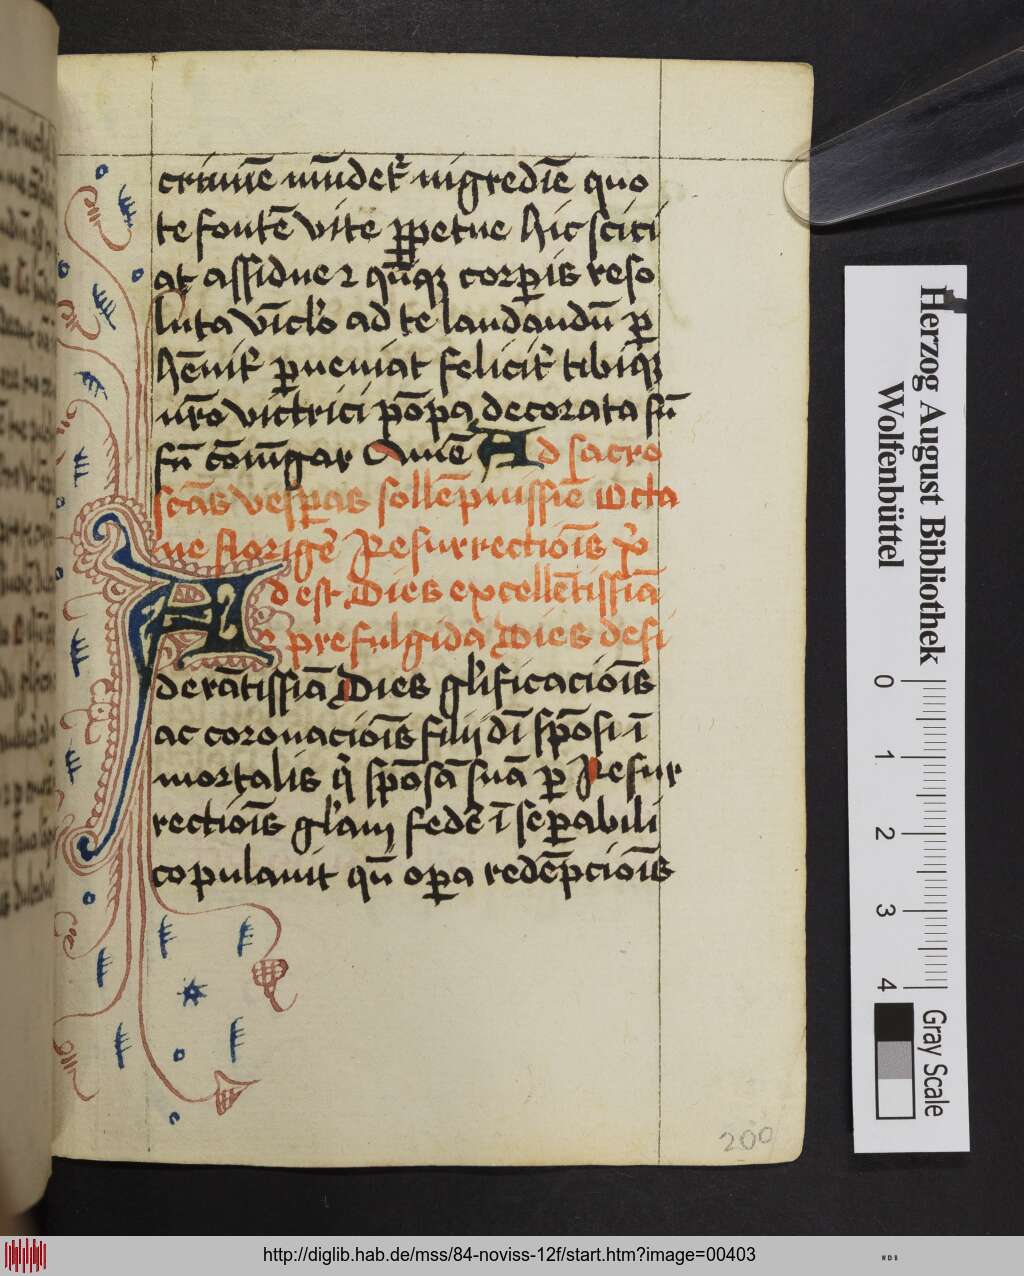 crimīe mūdet᷑ ingredīe quo
te fontē vite ꝑpetue hic sciti
at assidue ⁊ qūqꝫ corꝑis reso
luta vīcl'o ad te laudandū ꝑ
hēnit᷑ ꝑueniat felicit᷑ tibiqꝫ
ūro victrici pōpa decorata sū
fū cōiūgar Amē Ad sacro
scās vesꝑas sollēpnissie Octa
ue florigē Resurrectiōis xp̄
Adest Dies excellētissiā
⁊ prefulgida Dies desi
derātissiā Dies gl'ificaciōis
ac coronaciōis filij dī spōsi ī
mortalis q̄ spōsā suā ꝑ Resur
rectiōis gl'am federe ī seꝑabili
copulauit qū oꝑa redēpciōis
200
Herzog August Bibliothek
Wolfenbüttel
0 1 2 3 4
Gray Scale
http://diglib.hab.de/mss/84-noviss-12f/start.htm?image=00403